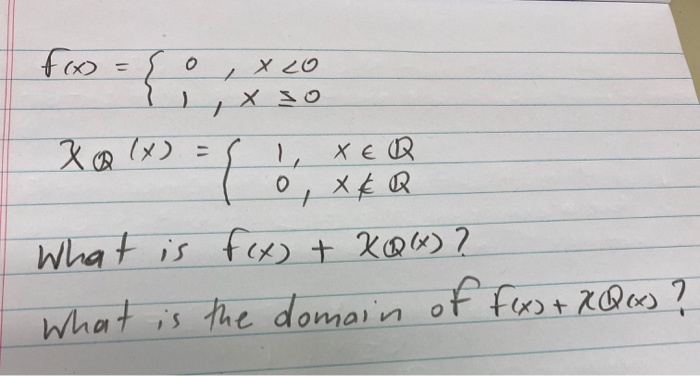 f(x) = { 0 , x < 0
1 , x ≥ 0
χℚ(x) = { 1, x ∈ ℚ
0, x ∉ ℚ
What is f(x) + χℚ(x)?
What is the domain of f(x) + χℚ(x)?